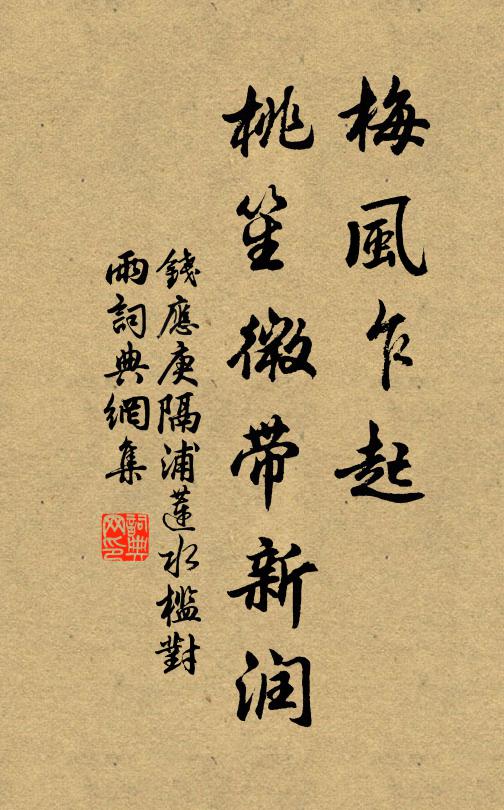 梅風乍起
桃笙微带新润
錢應庚隔浦蓮水檻對
雨詞典網集
詞典
网印